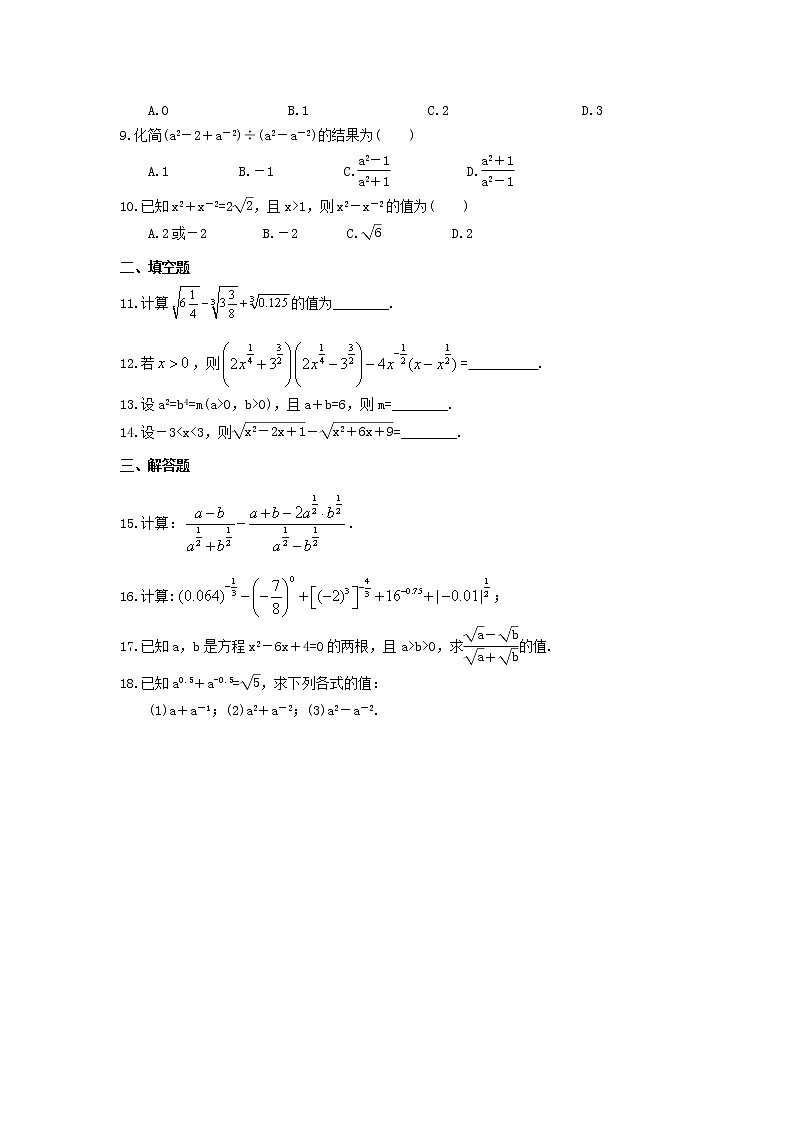 A.0 B.1 C.2 D.3
9.化简(a²－2＋a⁻²)÷(a²－a⁻²)的结果为( )
A.1 B.－1 C.\frac{a²－1}{a²＋1} D.\frac{a²＋1}{a²－1}
10.已知x²＋x⁻²=2\sqrt{2},且x>1,则x²－x⁻²的值为( )
A.2或－2 B.－2 C.\sqrt{6} D.2
二、填空题
11.计算\sqrt{6\frac{1}{4}}-\sqrt[3]{3\frac{3}{8}}+\sqrt[3]{0.125}的值为________.
12.若x>0,则(2x^{\frac{1}{4}}+3^{\frac{3}{2}})(2x^{\frac{1}{4}}-3^{\frac{3}{2}})-4x^{-\frac{1}{2}}(x-x^{\frac{1}{2}})=__________.
13.设a²=b⁴=m(a>0,b>0),且a＋b=6,则m=________.
14.设－3<x<3,则\sqrt{x²－2x＋1}－\sqrt{x²＋6x＋9}=________.
三、解答题
15.计算:\frac{a-b}{a^{\frac{1}{2}}+b^{\frac{1}{2}}}-\frac{a+b-2a^{\frac{1}{2}}·b^{\frac{1}{2}}}{a^{\frac{1}{2}}-b^{\frac{1}{2}}}.
16.计算:(0.064)^{-\frac{1}{3}}-(-\frac{7}{8})^{0}+[(-2)^{3}]^{-\frac{4}{3}}+16^{-0.75}+|-0.01|^{\frac{1}{2}};
17.已知a,b是方程x²－6x＋4=0的两根,且a>b>0,求\frac{\sqrt{a}－\sqrt{b}}{\sqrt{a}＋\sqrt{b}}的值.
18.已知a^{0.5}＋a^{-0.5}=\sqrt{5},求下列各式的值:
(1)a＋a⁻¹;(2)a²＋a⁻²;(3)a²－a⁻².